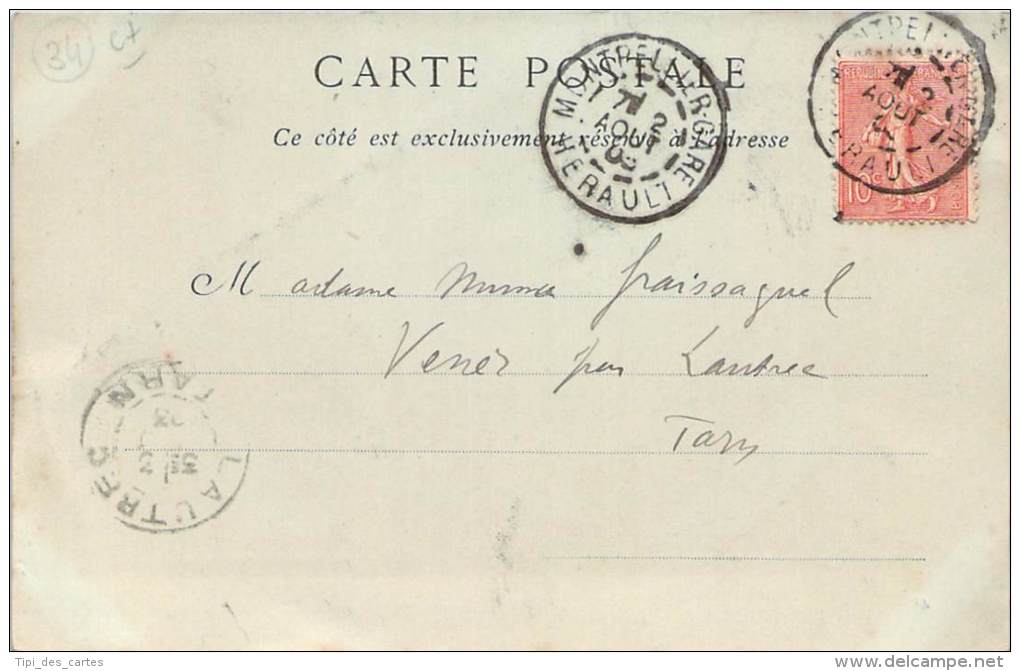 34 ct
CARTE POSTALE
Ce côté est exclusivement réservé à l'adresse
MONTPELLIER-GARE
AOUT
03
HERAULT
AOUT
10c
Madame Numa Fraissaguel
Venès par Lautrec
Tarn
LAUTREC
TARN
03
Tipi_des_cartes
www.delcampe.net